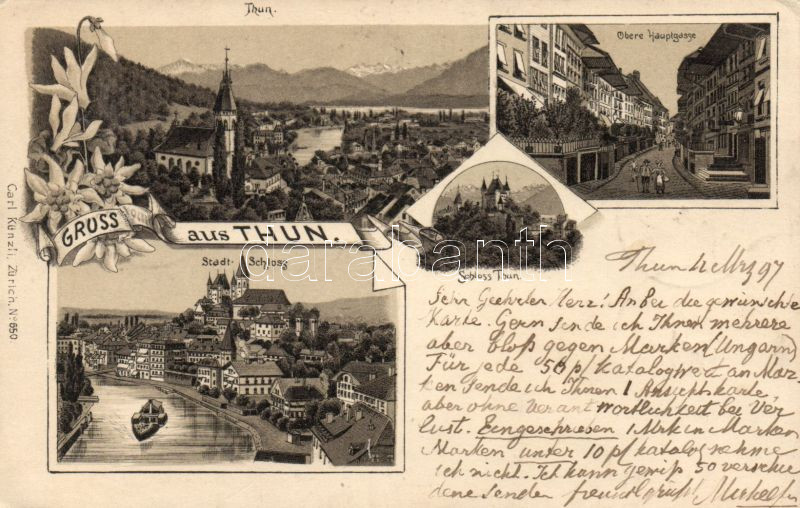 Thun.
Obere Hauptgasse
GRUSS
aus THUN.
Schloss Thun.
Stadt- Schloss
Carl Künzli, Zürich. No 650
darabanth
Thun 12 Mrz 97
Sehr Geehrter Herr! Anbei die gewünschte
Karte. Gern sende ich Ihnen mehrere
aber bloß gegen Marken (Ungarn)
Für jede 50 pf katalogwert an Mar
ken sende ich Ihnen 1 Ansichtskarte,
aber ohne Verantwortlichkeit bei Ver
lust. Eingeschrieben 1 Mrk in Marken
Marken unter 10 pf katalog nehme
ich nicht. Ich kann gewiß 50 verschie
dene senden